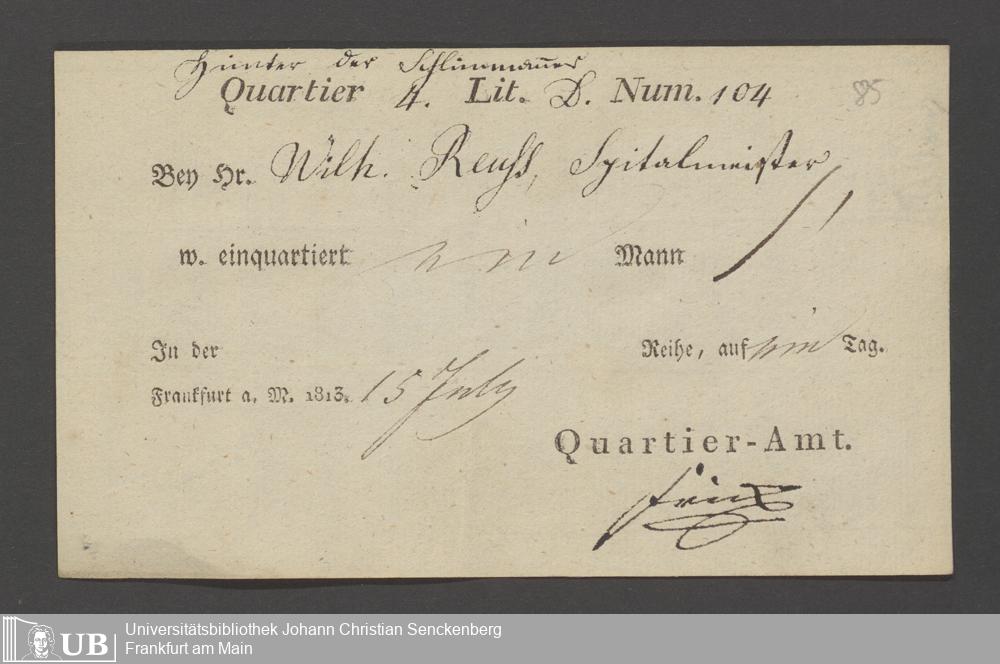 Hinter der Schlimmauer
Quartier 4. Lit. D. Num. 104
85
Bey Hr. Wilh. Reuß, Spitalmeister
w. einquartiert ein Mann
In der Reihe, auf ein Tag.
Frankfurt a. M. 1813. 15 July
Quartier-Amt.
UB
Universitätsbibliothek Johann Christian Senckenberg
Frankfurt am Main